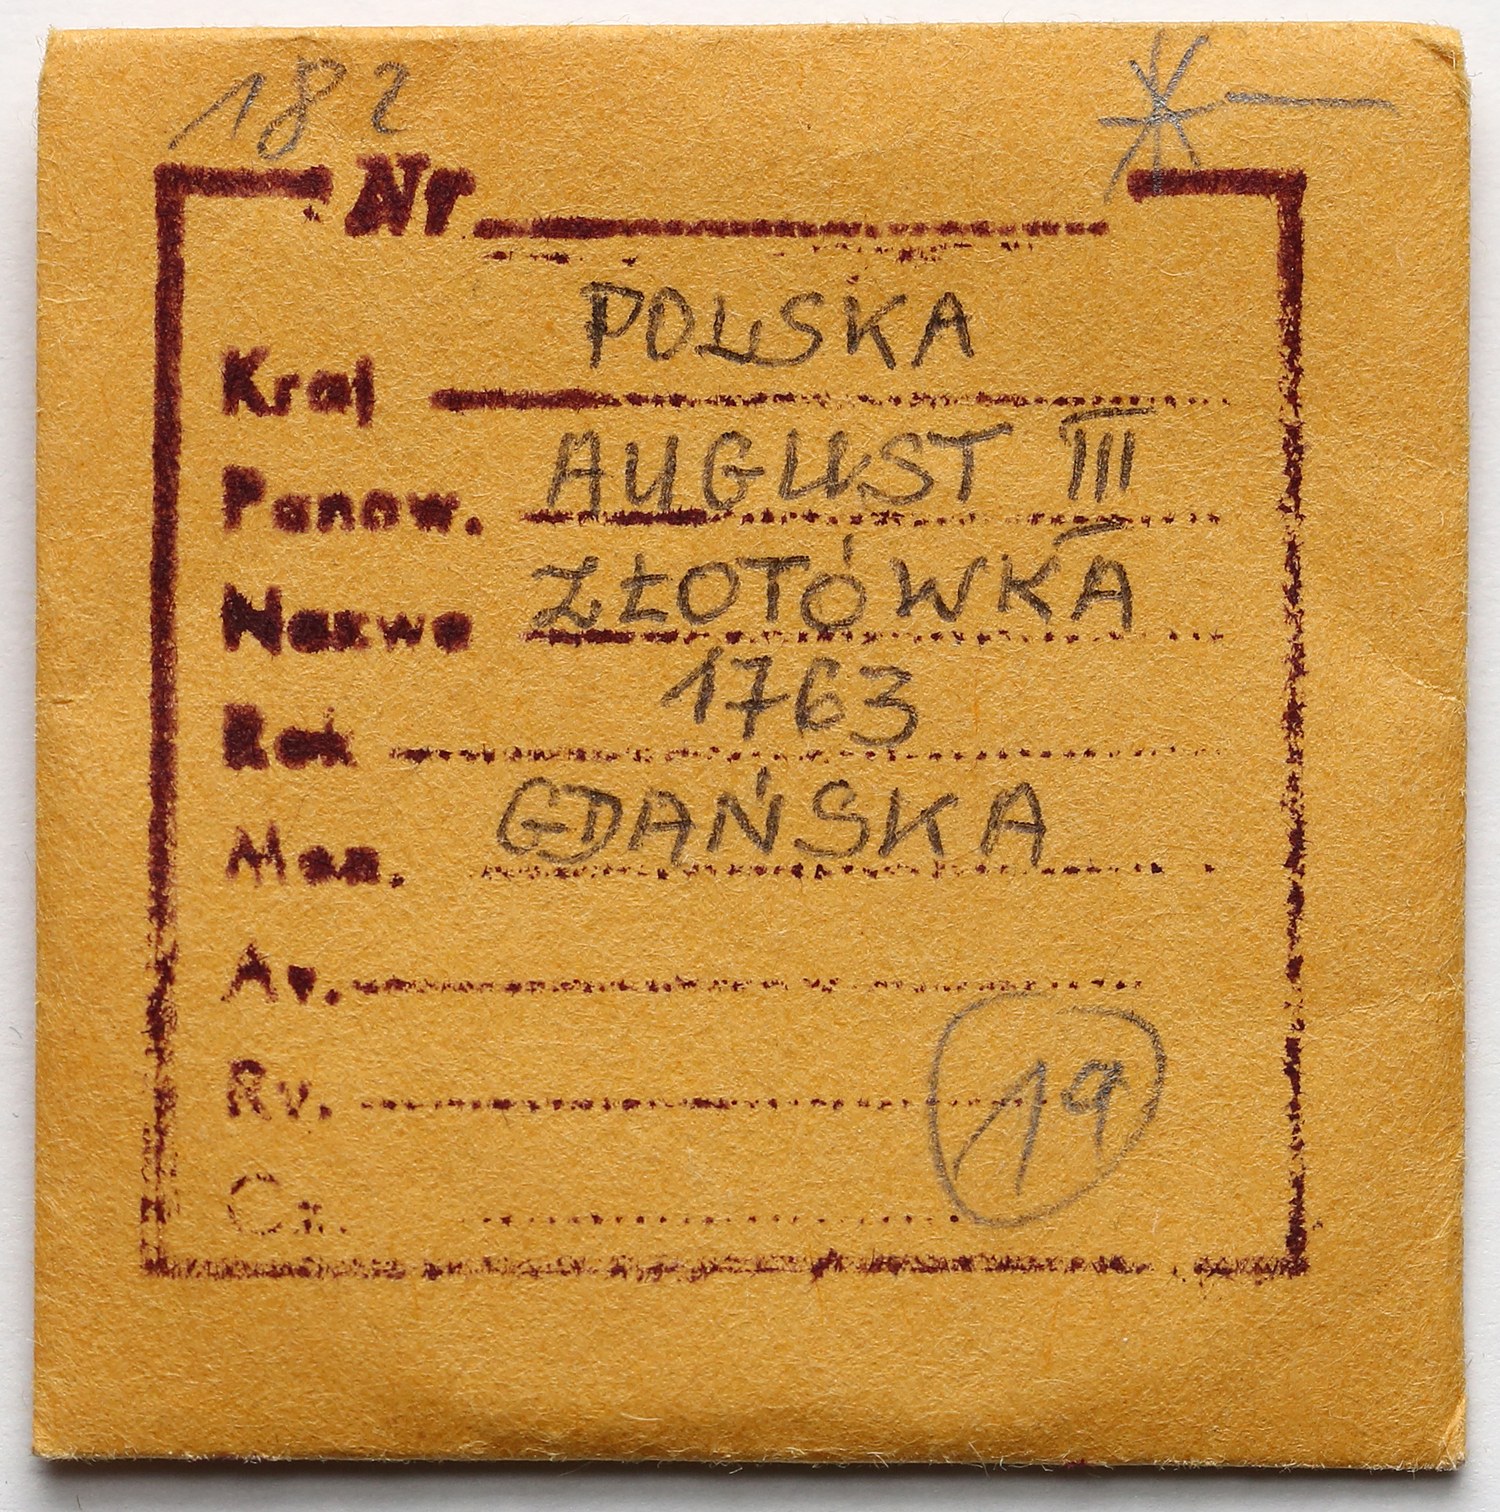 182
Nr
Kraj POLSKA
Panow. AUGUST III
Nazwa ZŁOTÓWKA
Rok 1763
Men. GDAŃSKA
Av.
Rv.
19